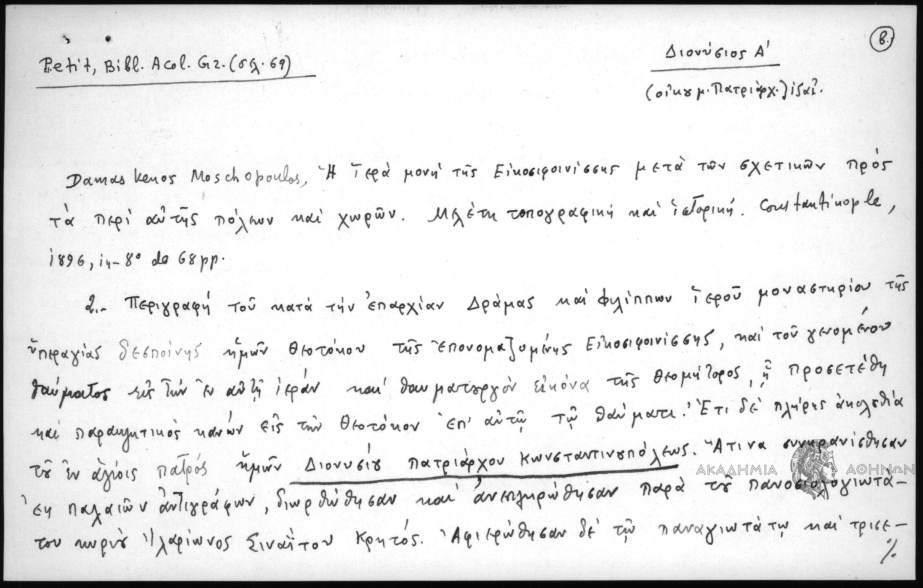 β.
Petit, Bibl. Acol. Gr. (σελ. 69)
Διονύσιος Α'
(οἰκουμ. Πατριάρχ.)
Damaskenos Moschopoulos, Ἡ Ἱερὰ μονὴ τῆς Εἰκοσιφοινίσσης μετὰ τῶν σχετικῶν πρὸς
τὰ περὶ αὐτῆς πόλεων καὶ χωρῶν. Μελέτη τοπογραφικὴ καὶ ἱστορική. Constantinople,
1896, in-8º de 68 pp.
2.- Περιγραφὴ τοῦ κατὰ τὴν ἐπαρχίαν Δράμας καὶ Φιλίππων ἱεροῦ μοναστηρίου τῆς
ὑπεραγίας δεσποίνης ἡμῶν Θεοτόκου τῆς ἐπονομαζομένης Εἰκοσιφοινίσσης, καὶ τοῦ γενομένου
θαύματος εἰς τὴν ἐν αὐτῇ ἱερὰν καὶ θαυματουργὸν εἰκόνα τῆς Θεομήτορος, ᾗ προσετέθη
καὶ παρακλητικὸς κανὼν εἰς τὴν Θεοτόκον ἐπ' αὐτῷ τῷ θαύματι. Ἔτι δὲ πλήρης ἀκολουθία
τοῦ ἐν ἁγίοις πατρὸς ἡμῶν Διονυσίου πατριάρχου Κωνσταντινουπόλεως. Ἅτινα συνηρανίσθησαν
ἐκ παλαιῶν ἀντιγράφων, διωρθώθησαν καὶ ἀνεπληρώθησαν παρὰ τοῦ πανοσιολογιωτά-
του κυρίου Ἱλαρίωνος Σιναΐτου Κρητός. Ἀφιερώθησαν δὲ τῷ παναγιωτάτῳ καὶ τρισε-
%
ΑΚΑΔΗΜΙΑ ΑΘΗΝΩΝ